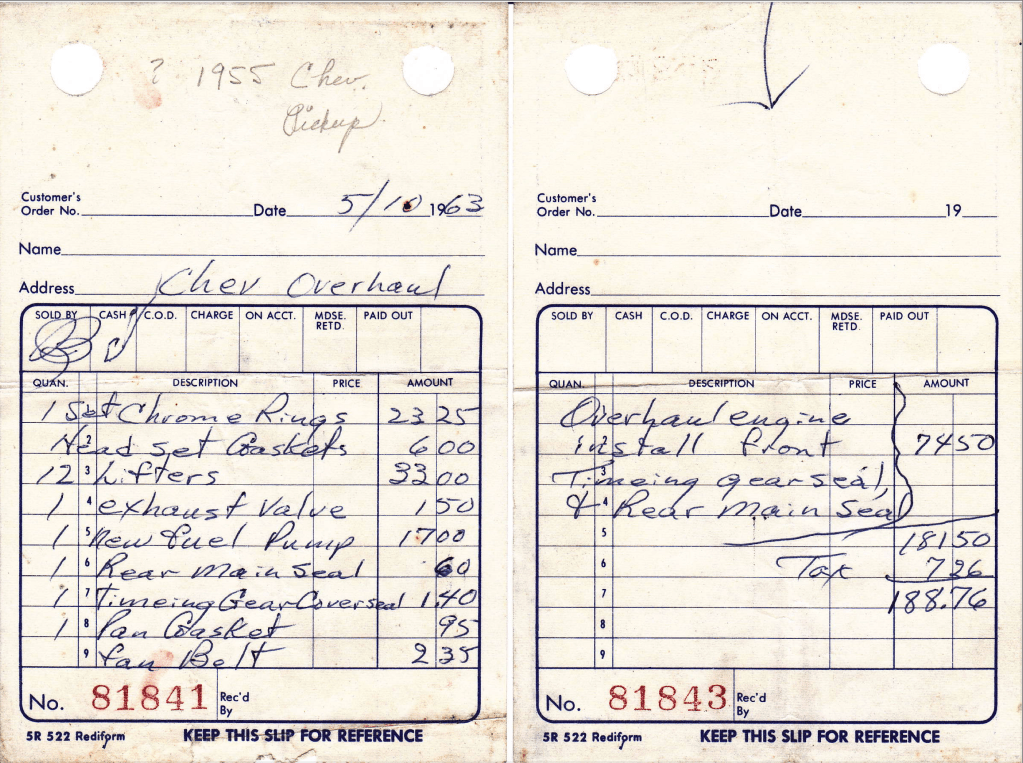 ? 1955 Chev.
Pickup
Customer's
Order No. Date 5/10 1963
Name
Address Chev Overhaul
SOLD BY CASH C.O.D. CHARGE ON ACCT. MDSE. RETD. PAID OUT
QUAN. DESCRIPTION PRICE AMOUNT
1 Set Chrome Rings 23 25
2 Head set Gaskets 6 00
12 3 Lifters 33 00
1 4 exhaust Valve 1 50
1 5 New fuel Pump 17 00
1 6 Rear main seal 60
1 7 Timeing Gear Cover seal 1.40
1 8 Pan Gasket 95
9 fan Belt 2 35
No. 81841 Rec'd By
5R 522 Rediform KEEP THIS SLIP FOR REFERENCE
Customer's
Order No. Date 19
Name
Address
SOLD BY CASH C.O.D. CHARGE ON ACCT. MDSE. RETD. PAID OUT
QUAN. DESCRIPTION PRICE AMOUNT
Overhaul engine
install front 74 50
3 Timeing gear seal,
4 & Rear main seal
5 181 50
6 Tax 7 26
7 188.76
8
9
No. 81843 Rec'd By
5R 522 Rediform KEEP THIS SLIP FOR REFERENCE